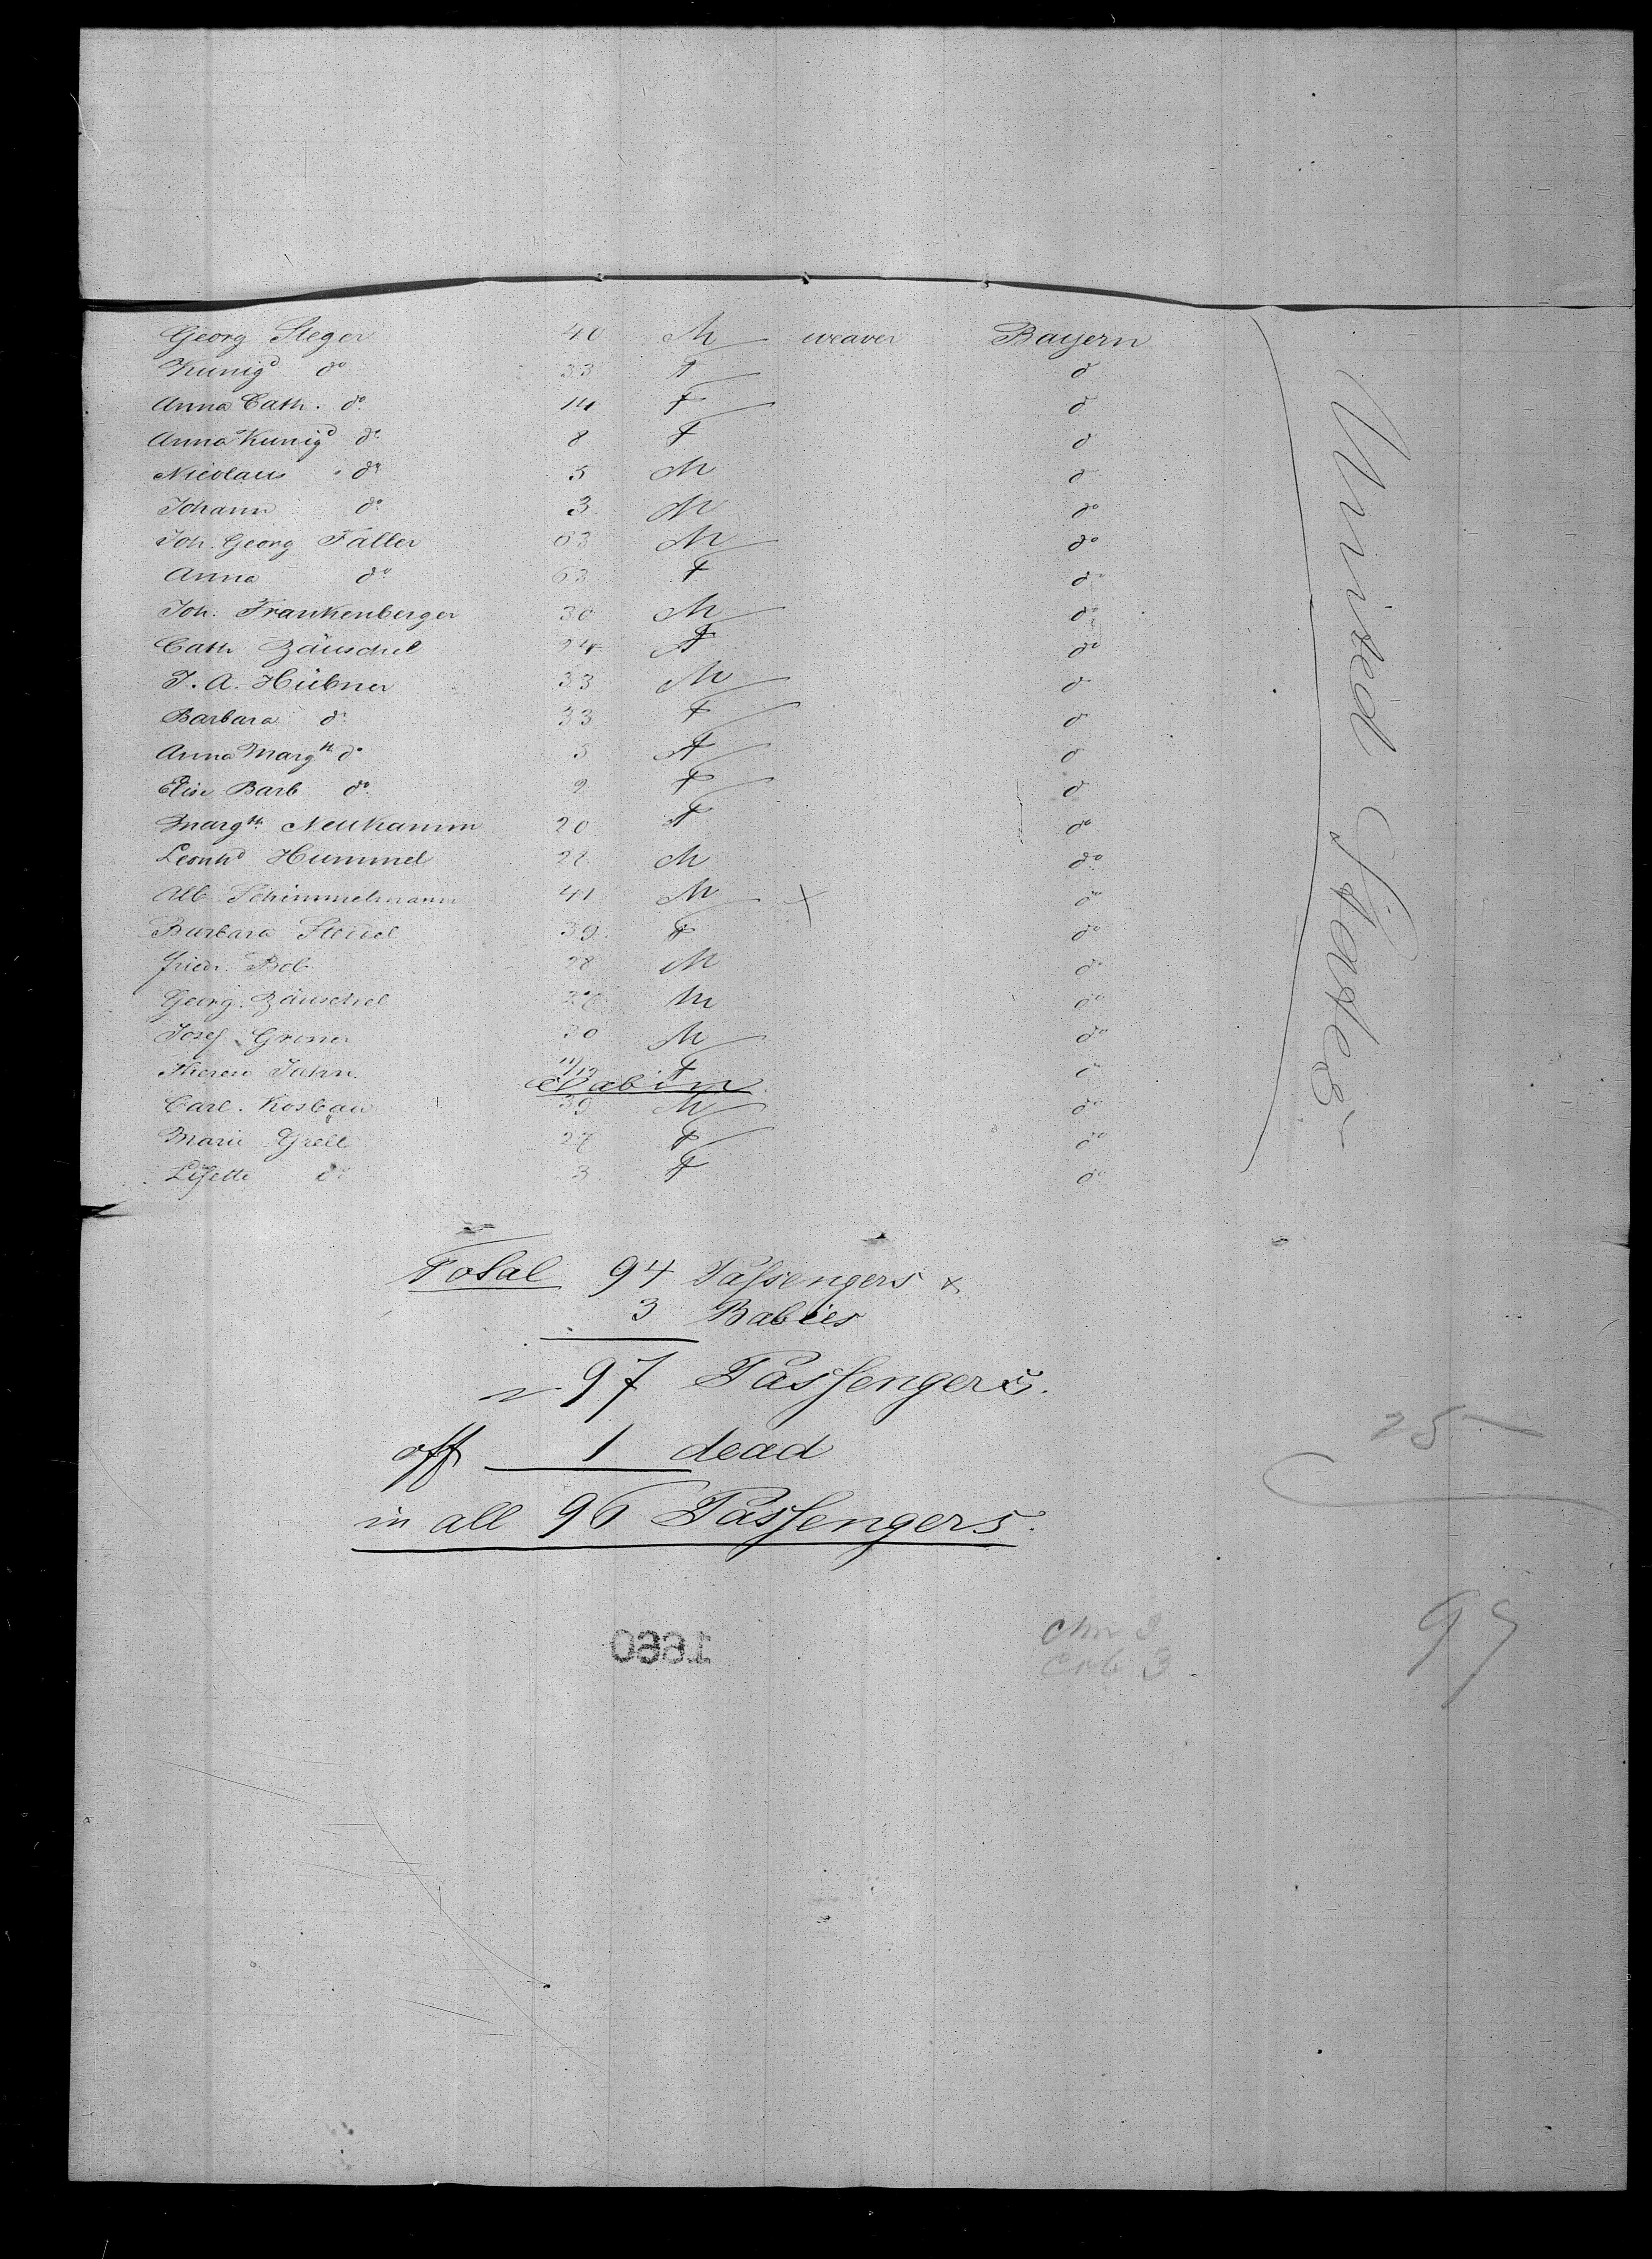 Georg Steger 40 M weaver Bayern
Kunigd do 33 F do
Anna Cath. do 14 F do
Anna Kunigd do 8 F do
Nicolaus do 5 M do
Johann do 3 M do
Joh. Georg Faller 63 M do
Anna do 63 F do
Joh. Frankenberger 30 M do
Cath Zäuschel 24 F do
J. A. Hübner 33 M do
Barbara do 33 F do
Anna Margth do 5 F do
Elise Barb do 2 F do
Margth. Neukamm 20 F do
Leonhd Hummel 27 M do
Alb Schimmelmann 41 M X do
Barbara 39 F do
Friedr. 28 M do
Georg. Zäuschel 27 M do
Josef Groner 30 M do
Therese Jahn. 11/12 F do
Cabin
Carl. Kosbau 39 M do
Marie Grell 27 F do
Lisette do 3 F do
United States
Total 94 Passengers &
3 Babies
97 Passengers.
off 1 dead
in all 96 Passengers.
25
97
1860